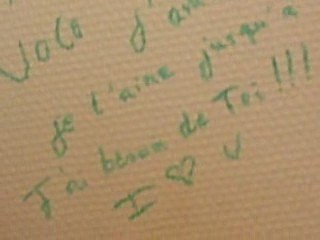 Jolo j'ai
je t'aime jusqu'a
J'ai besoin de Toi !!!
I ♡ U